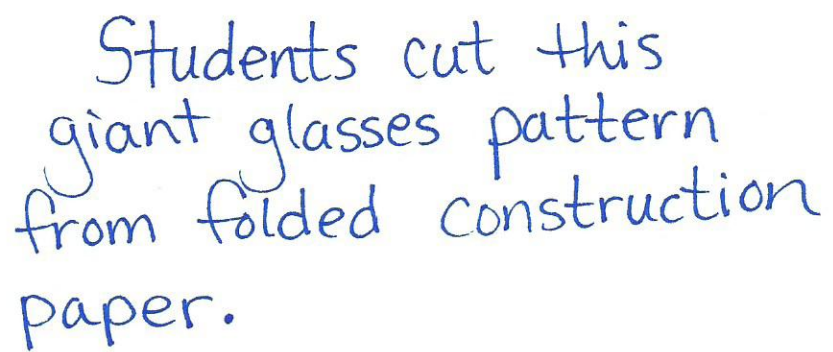 Students cut this
giant glasses pattern
from folded construction
paper.